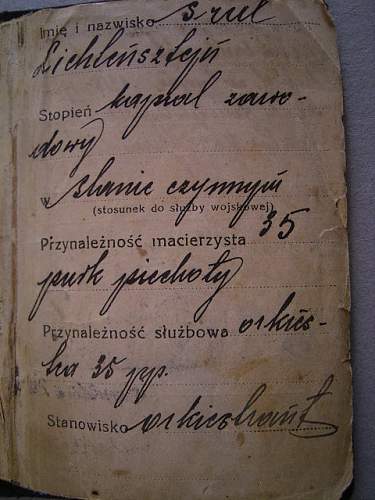 Imię i nazwisko Szul
Lichtensztejn
Stopień kapral zawo-
dowy
w stanie czynnym
(stosunek do służby wojskowej)
Przynależność macierzysta 35
pułk piechoty
Przynależność służbowa orkies-
tra 35 pp.
Stanowisko orkiestrant